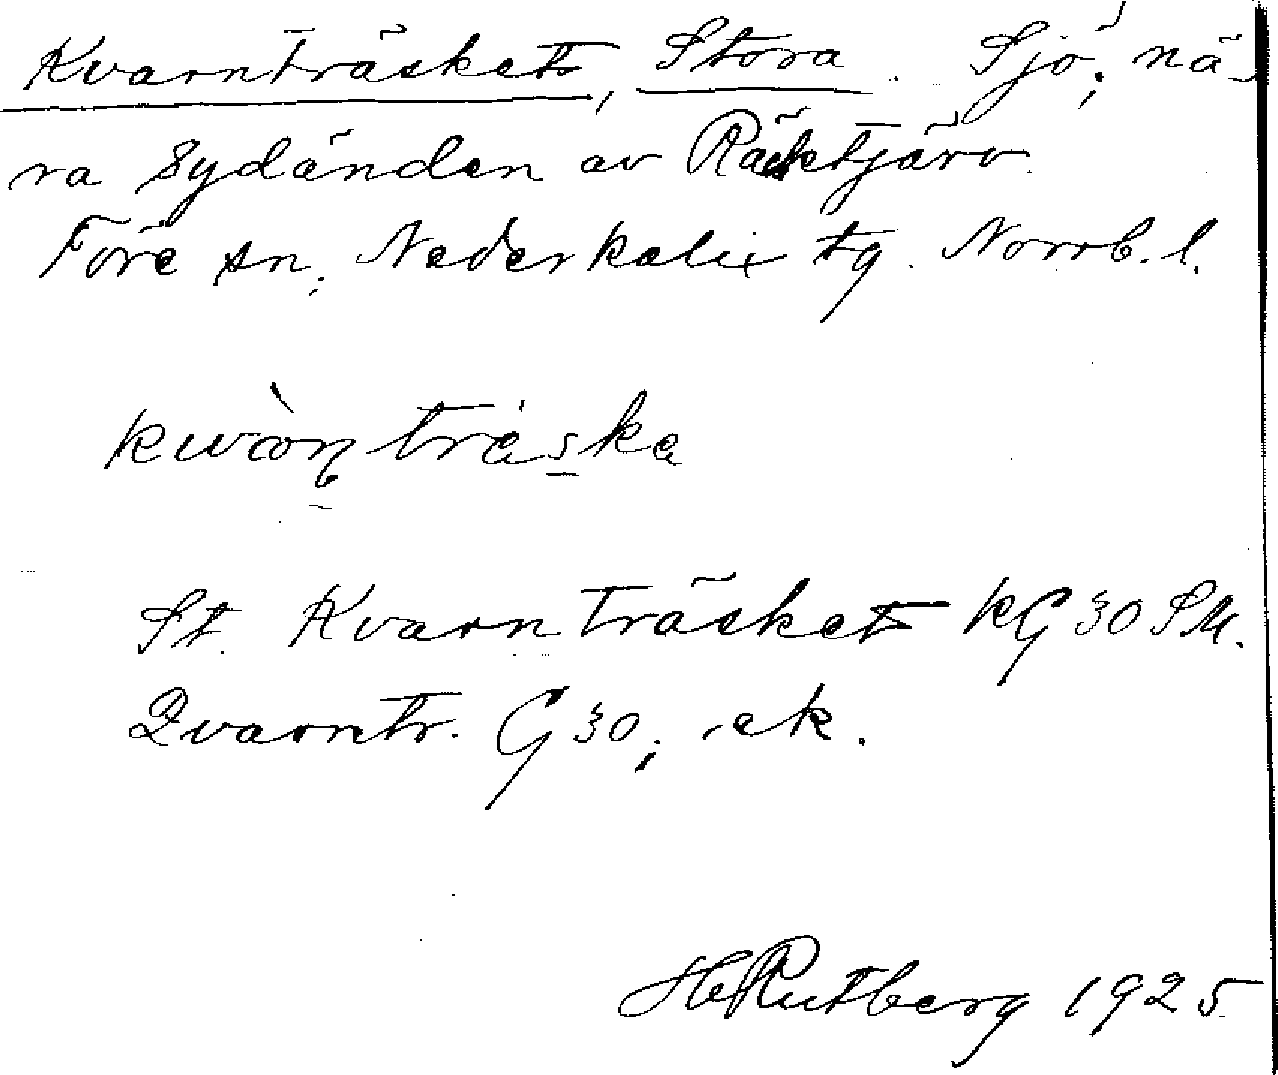 Kvarnträsket, Stora. Sjö, nä-
ra sydänden av Räktjärv.
Töre sn, Nederkalix tg. Norrb. l.
St. Kvarnträsket kG 30 SM.
Qvarntr. G 30, ek.
H Rutberg 1925